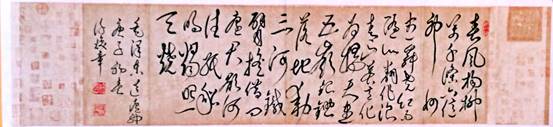 春风杨柳
万千条六亿
神州
尽舜尧红雨
随心翻作浪
青山着意化
为桥天连
五岭银锄
落地动
三河铁
臂摇借问
瘟君欲何
往纸船
明烛照
天烧
毛泽东送瘟神
庚子